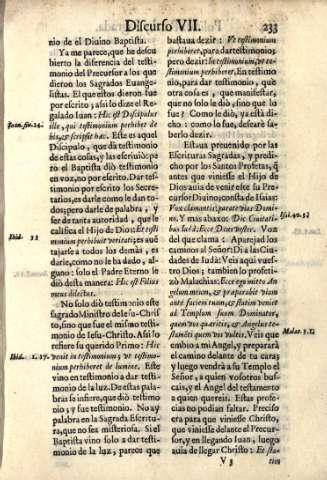 Discurso VII.
233
nio de el Diuino Baptista.
Ya me parece, que he descu
bierto la diferencia del testi
monio del Precursor a los que
dieron los Sagrados Euange-
listas. El que estos dieron fue
por escrito; assi lo dize el Re-
galado Iuan: Hic est Discipulus
ille, qui testimonium perhibet de
his, & scripsit hæc. Este es aquel
Discipulo, que dà testimonio
de estas cosas, y las escriuiò; pe
ro el Baptista diò testimonio
en voz, no por escrito. Dar tes-
timonio por escrito los Secre-
tarios, es darle como le dan to-
dos; pero darle de palabra, y
ser de tanta autoridad, que le
califica el Hijo de Dios: Et testi
monium perhibuit veritati; es vẽ
tajarse a todos los demàs, es
darle, como no le ha dado, al-
guno: solo el Padre Eterno le
diò desta manera: Hic est Filius
meus dilectus.
No solo diò testimonio este
sagrado Ministro de Iesu-Chris
to, sino que fue el mismo testi-
monio de Iesu-Christo. Assi lo
refiere su querido Primo: Hic
venit in testimonium; vt testimo-
nium perhiberet de lumine. Este
vino en testimonio a dar testi-
monio de la luz. De estas pala-
bras se infiere, que diò testimo
nio; y fue testimonio. No ay
palabra en la Sagrada Escritu-
ra, que no sea misteriosa. Si el
Baptista vino solo a dar testi-
monio de la luz, parece que
Ioan. sin. 24.
Ibid. 33
Ibid. 1. 27.
bastaua dezir: Vt testimonium
perhiberet, para dar testimonio;
pero dezir: In testimonium, vt tes-
timonium perhiberet, En testimo
nio, para dar testimonio, que
otra cosa es, que manifestar,
que no solo le diò, sino que lo
fue? Como le diò, ya està di-
cho: como lo fue, desearè sa-
berlo dezir.
Estaua preuenido por las
Escrituras Sagradas, y predi-
cho por los Santos Profetas, q̃
antes que viniesse el Hijo de
Dios auia de venir este su Pre-
cursor Diuino, consta de Isaias:
Vox clamantis: parate vias Domi-
ni. Y mas abaxo: Dic Ciuitati-
bus Iudà: Ecce Deus vester. Voz
del que clama: Aparejad los
caminos al Señor: Dì a las Ciu
dades de Iudà: Veis aqui vues-
tro Dios; tambien lo profeti-
zò Malachias: Ecce ego mitto An
gelum meum, & præparabit viam
antè faciem tuam, & statim veniet
ad Templum suum Dominator,
quem vos quæritis, & Angelus te-
stamẽti quem vos vultis. Veis que
embio a mi Angel, y prepararà
el camino delante de tu cara;
y luego vendrà a su Templo el
Señor, a quien vosotros bus-
cais, y el Angel del testamento
a quien quereis. Estas profe-
cias no podian faltar. Preciso
era para que viniesse Christo,
que viniesse delante el Precur-
sor, y en llegando Iuan, luego
auia de llegar Christo: Et sta-
Isai. 40. 3.
Malac. 3. 1.
V 3
tim